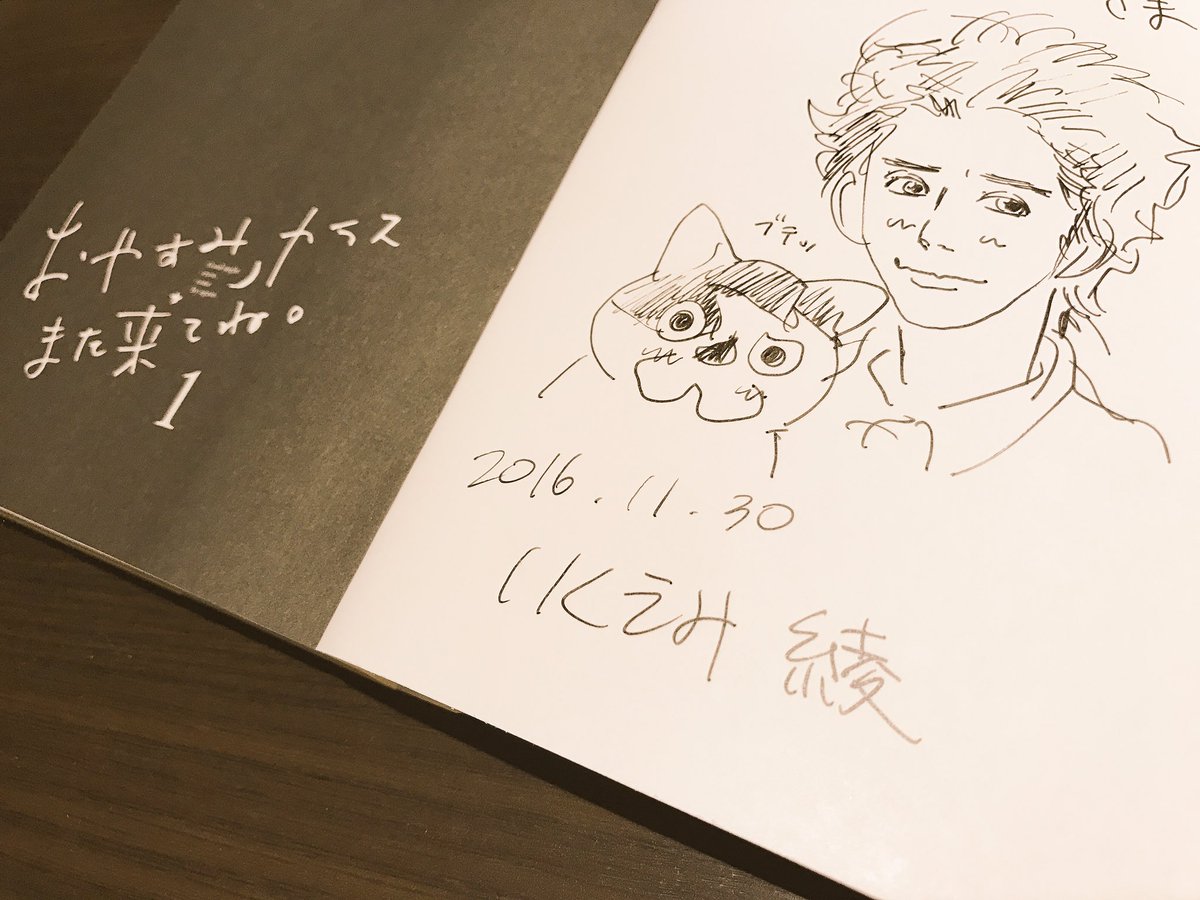 さま
おやすみカラス
また来てね。
1
ブテッ
2016.11.30
いくえみ綾